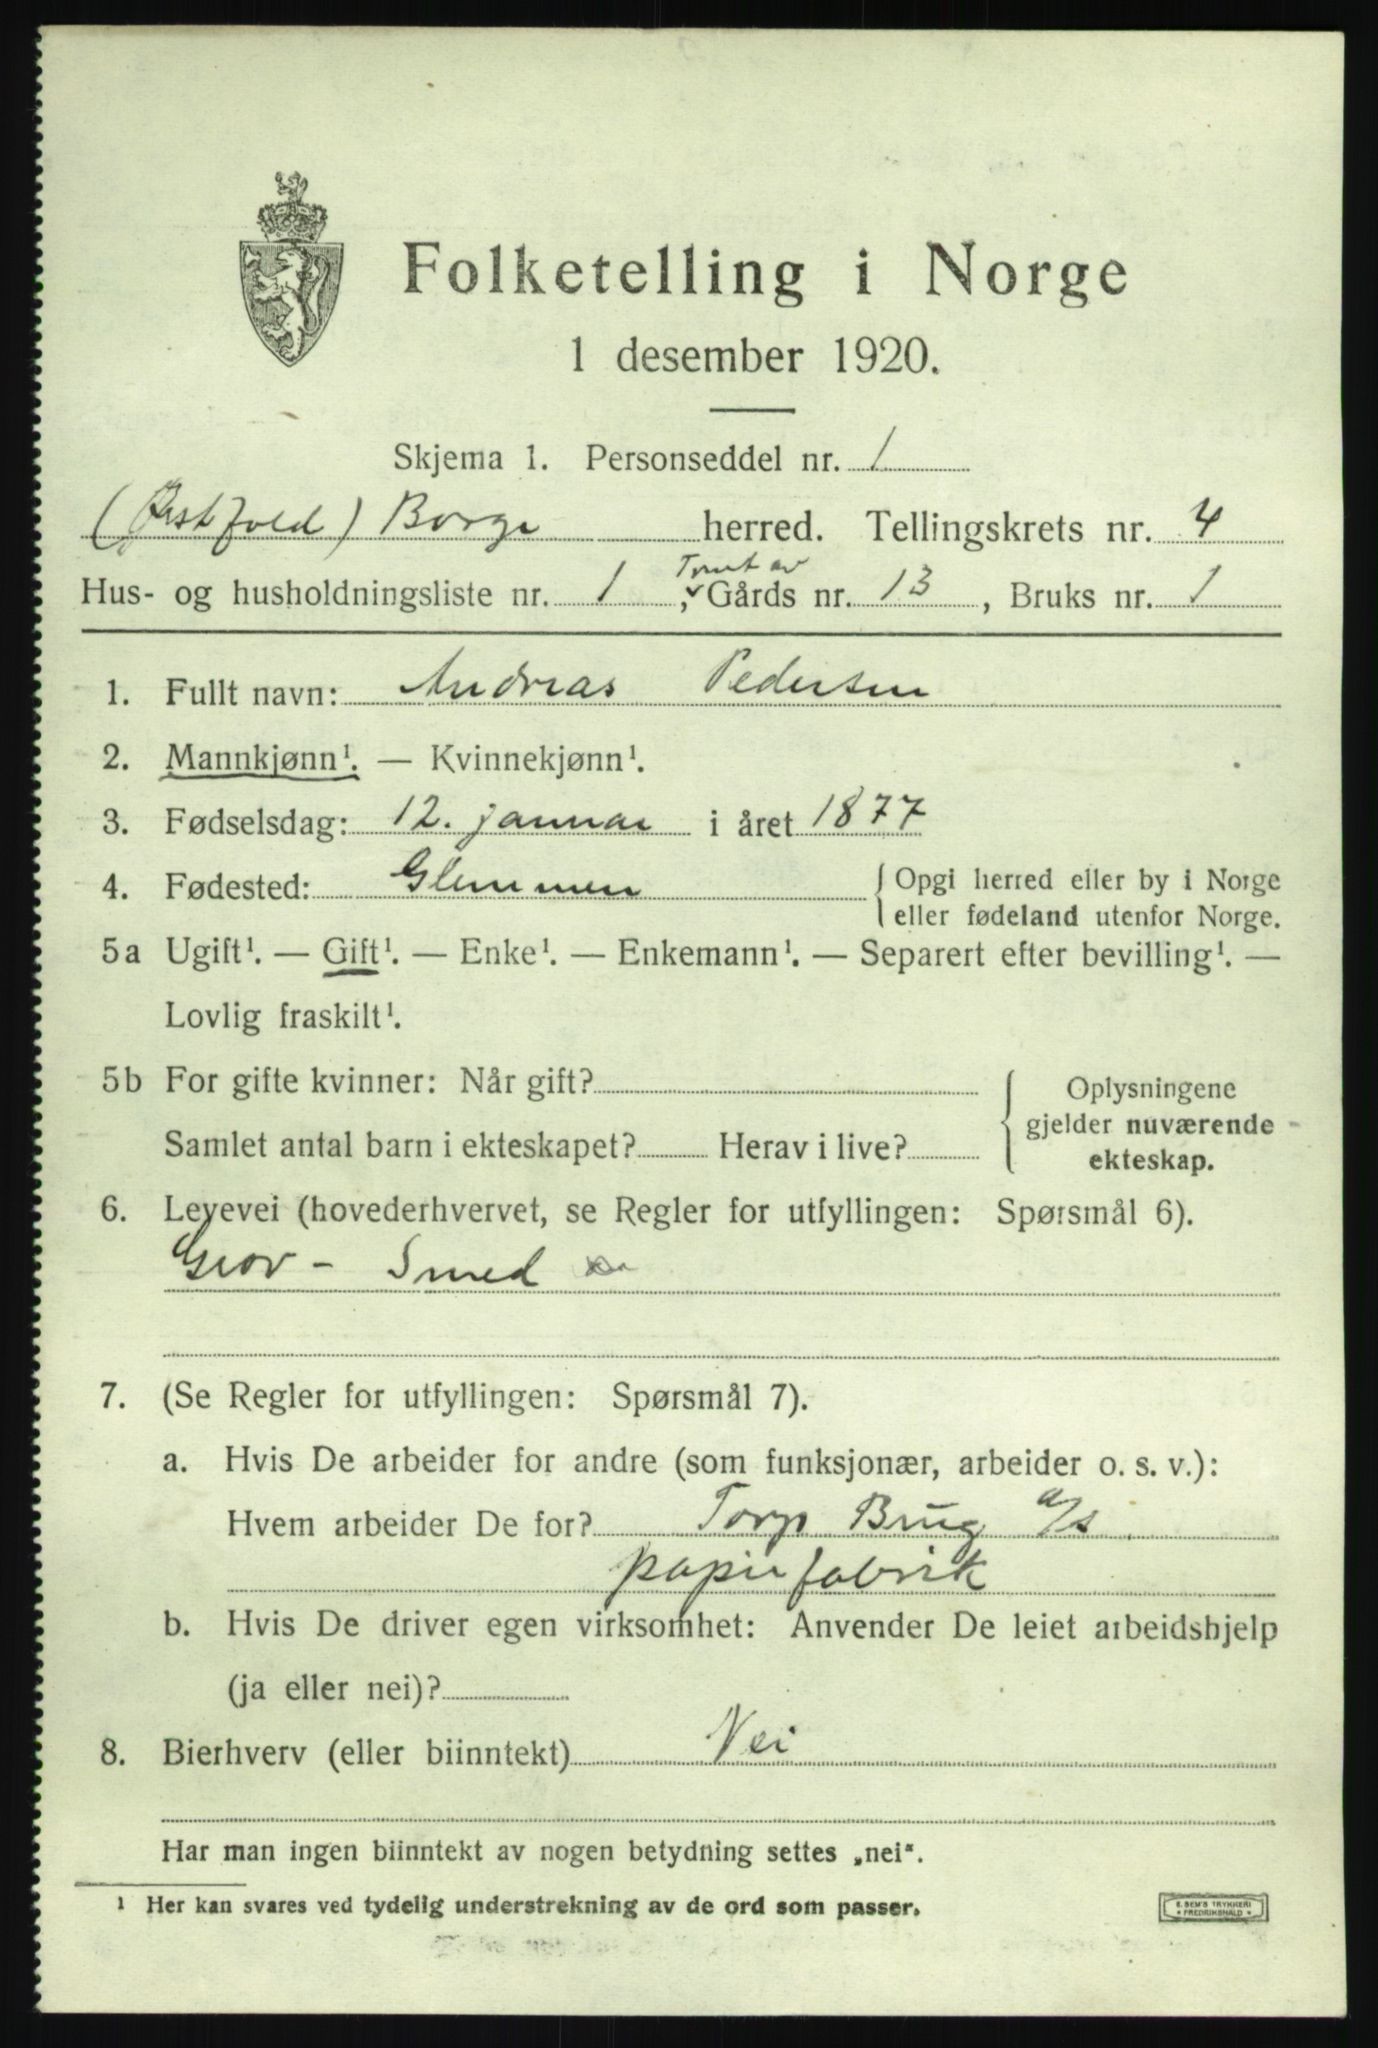 Folketelling i Norge
1 desember 1920.
Skjema 1. Personseddel nr. 1
(Østfold) Borge herred. Tellingskrets nr. 4
Tomt av
Hus- og husholdningsliste nr. 1, Gårds nr. 13, Bruks nr. 1
1. Fullt navn: Andreas Pedersen
2. Mannkjønn¹. — Kvinnekjønn¹.
3. Fødselsdag: 12. januar i året 1877
4. Fødested: Glemmen { Opgi herred eller by i Norge
eller fødeland utenfor Norge.
5a Ugift¹. — Gift¹. — Enke¹. — Enkemann¹. — Separert efter bevilling¹. —
Lovlig fraskilt¹.
5b For gifte kvinner: Når gift?
Samlet antal barn i ekteskapet? Herav i live?
{ Oplysningene
gjelder nuværende
ekteskap.
6. Levevei (hovederhvervet, se Regler for utfyllingen: Spørsmål 6).
Grov - Smed
7. (Se Regler for utfyllingen: Spørsmål 7).
a. Hvis De arbeider for andre (som funksjonær, arbeider o. s. v.):
Hvem arbeider De for? Torp Brug a/s
papirfabrik
b. Hvis De driver egen virksomhet: Anvender De leiet arbeidshjelp
(ja eller nei)?
8. Bierhverv (eller biinntekt) Nei
Har man ingen biinntekt av nogen betydning settes „nei".
¹ Her kan svares ved tydelig understrekning av de ord som passer.
E. SEM'S TRYKKERI
• FREDRIKSHALD •